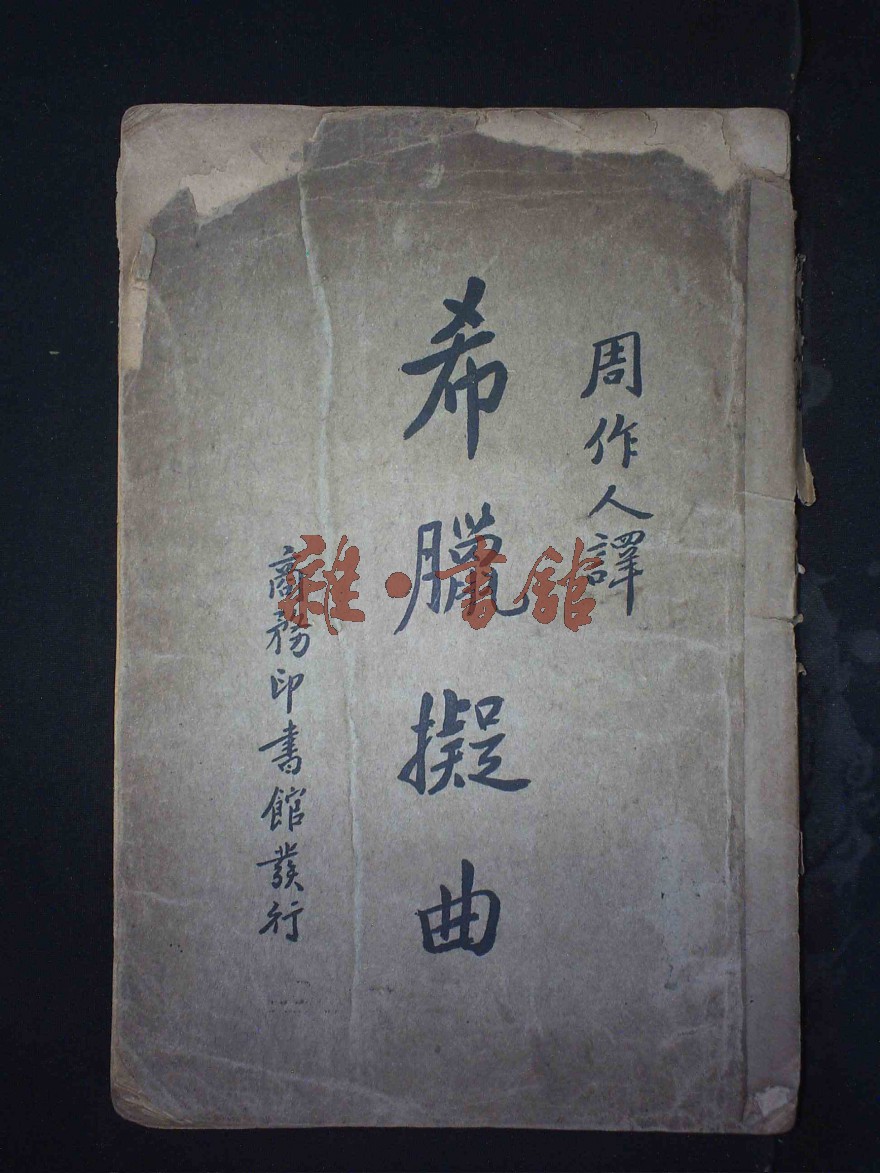 周作人譯
希臘擬曲
商務印書館發行
雜·書館